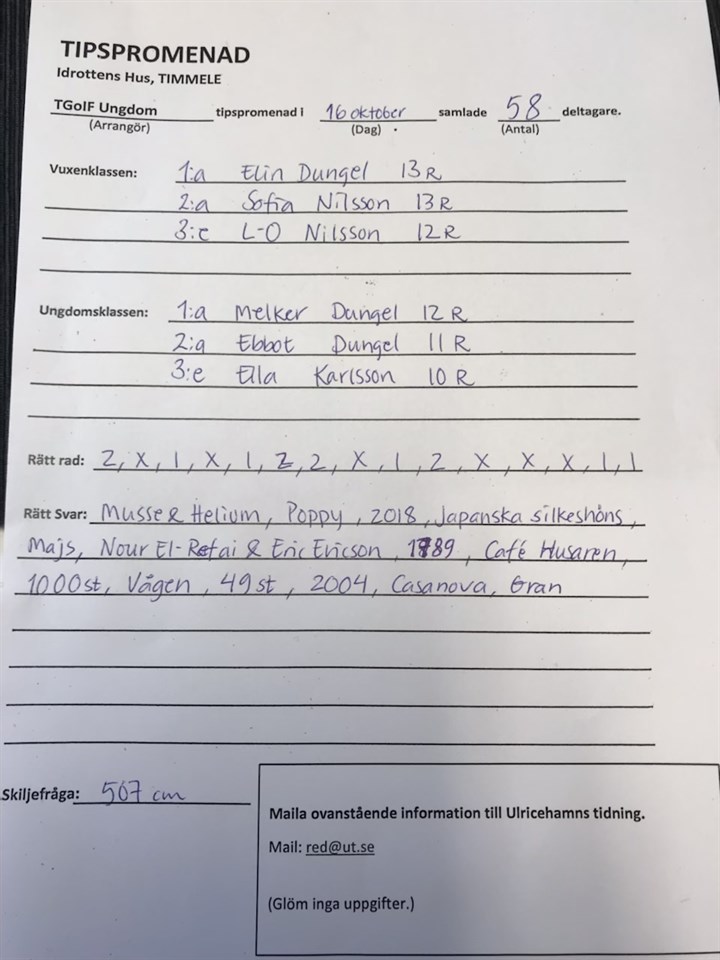 TIPSPROMENAD
Idrottens Hus, TIMMELE
TGoIF Ungdom tipspromenad i 16 oktober samlade 58 deltagare.
(Arrangör) (Dag) (Antal)
Vuxenklassen: 1:a Elin Dungel 13 R
2:a Sofia Nilsson 13 R
3:e L-O Nilsson 12 R
Ungdomsklassen: 1:a Melker Dungel 12 R
2:a Ebbot Dungel 11 R
3:e Ella Karlsson 10 R
Rätt rad: 2, X, 1, X, 1, 2, 2, X, 1, 2, X, X, X, 1, 1
Rätt Svar: Musse & Helium, Poppy, 2018, Japanska silkeshöns,
Majs, Nour El-Refai & Eric Ericson, 1789, Café Husaren,
1000st, Vågen, 49st, 2004, Casanova, Gran
Skiljefråga: 507 cm
Maila ovanstående information till Ulricehamns tidning.
Mail: red@ut.se
(Glöm inga uppgifter.)